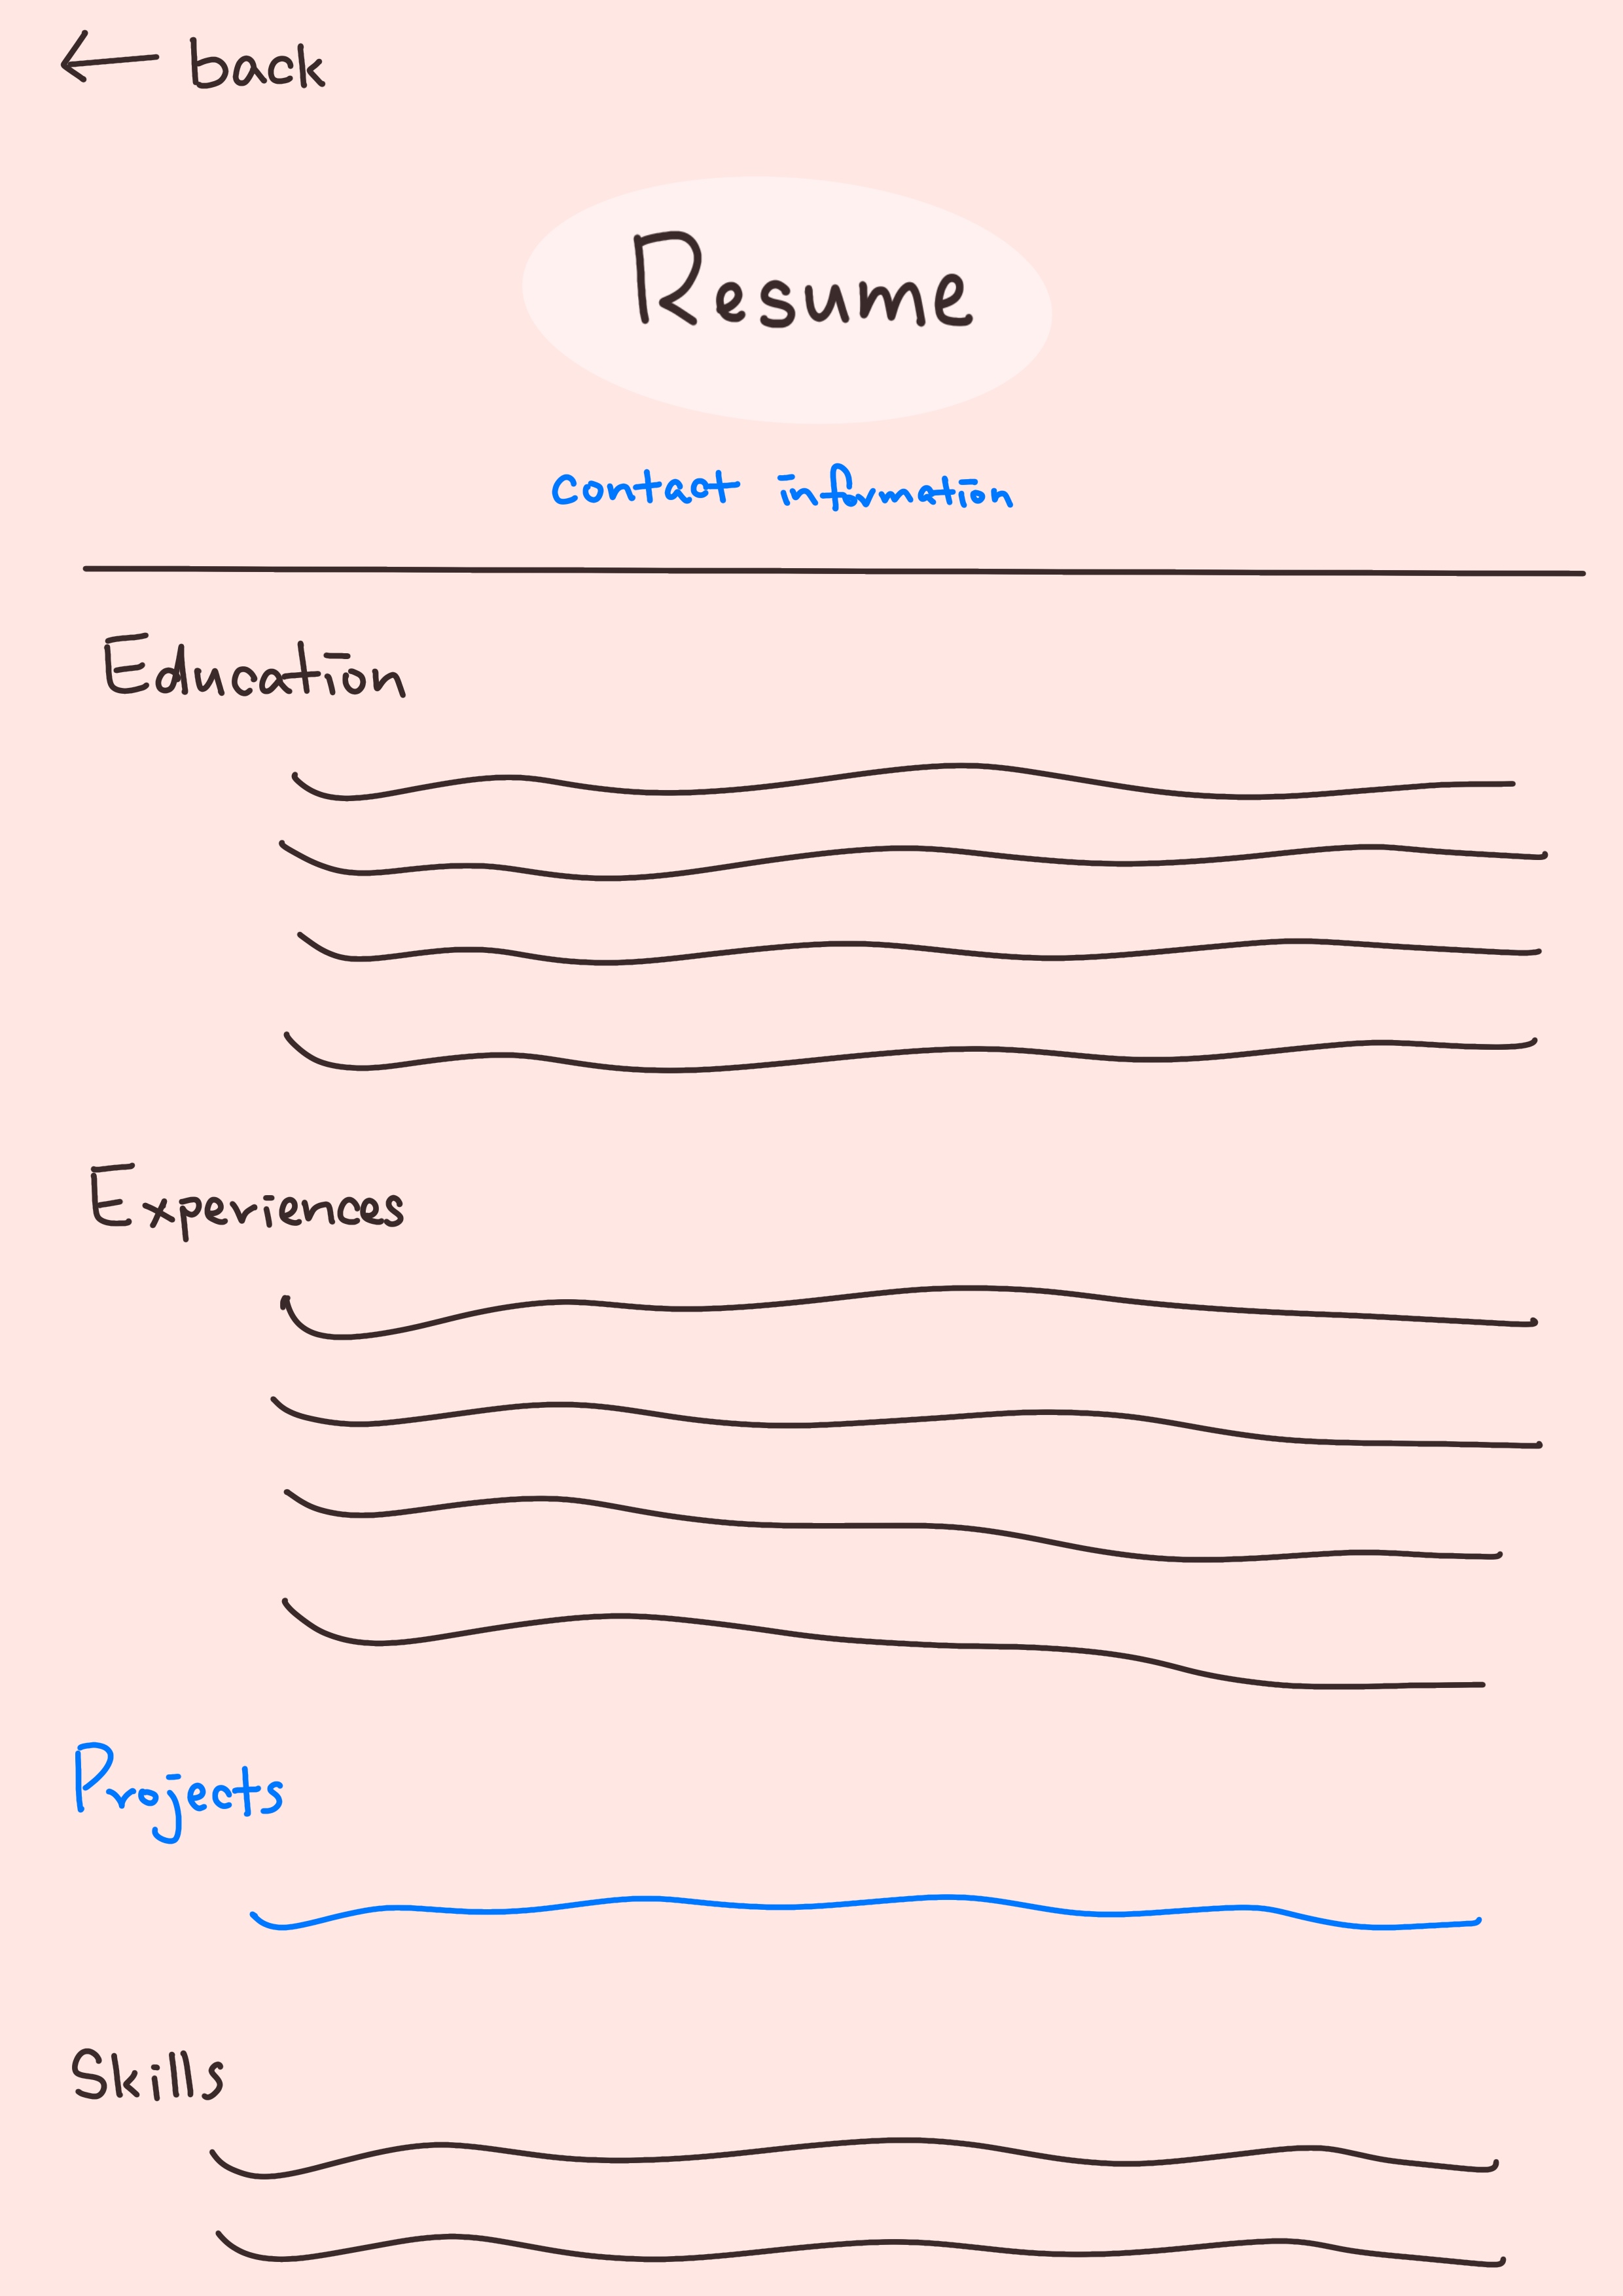 ← back
Resume
contact information
Education
Experiences
Projects
Skills